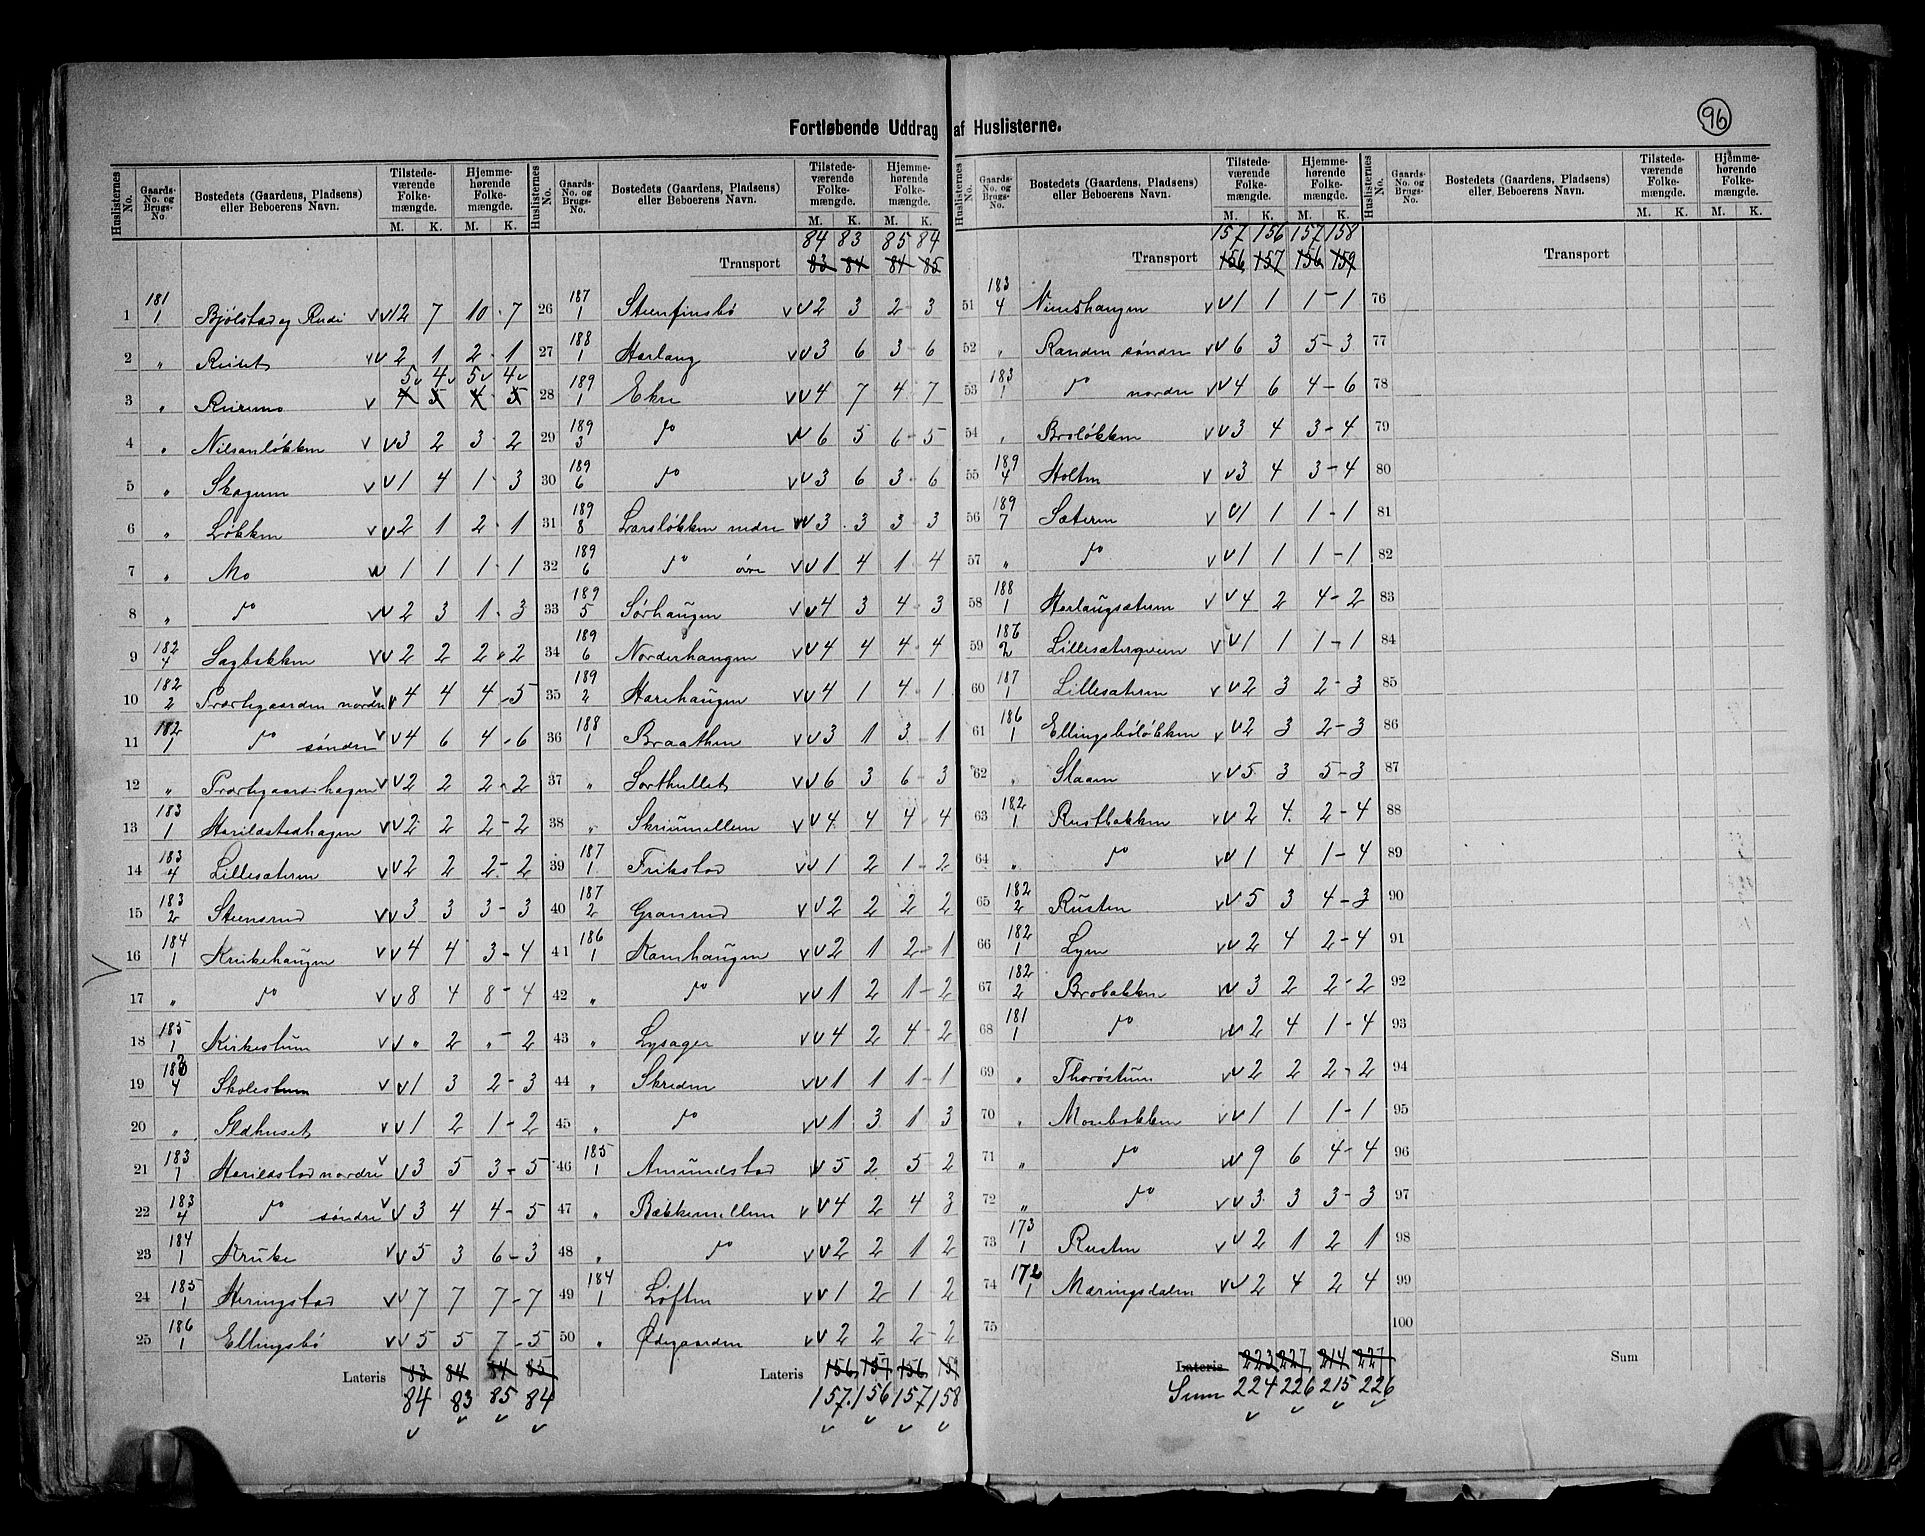 96
Fortløbende Uddrag af Huslisterne.
Huslisternes No. | Gaards-No. og Brugs-No. | Bostedets (Gaardens, Pladsens) eller Beboerens Navn. | Tilstedeværende Folkemængde. M. K. | Hjemmehørende Folkemængde. M. K.
1 181/1 Bjölstad og Rudi 12 7 10 - 7
2 " Rudet 2 1 2 - 1
5 4 5 4
3 " Ruremo 4 5 4 5
4 " Nilsenlökken 3 2 3 - 2
5 " Skogum 1 4 1 - 3
6 " Lökken 2 1 2 - 1
7 " Mo 1 1 1 - 1
8 " do 2 3 1 - 3
9 182/4 Sagbakken 2 2 2 - 2
10 182/2 Præstegaarden nordre 4 4 4 - 5
11 182/1 do søndre 4 6 4 - 6
12 " Præstegaardshagen 2 2 2 - 2
13 183/1 Harildstadhagen 2 2 2 - 2
14 183/4 Lillesæteren 2 2 2 - 2
15 183/2 Steensrud 3 3 3 - 3
16 184/1 Krukehaugen 4 4 3 - 4
17 " do 8 4 8 - 4
18 185/1 Kirkestuen " 2 " - 2
19 182/4 Skolestuen 1 3 2 - 3
20 " Ildhuset 1 2 1 - 2
21 183/1 Harildstad nordre 3 5 3 - 5
22 183/4 do søndre 3 4 4 - 5
23 184/1 Kruke 5 3 6 - 3
24 185/1 Heringstad 7 7 7 - 7
25 186/1 Ellingsbö 5 5 7 - 5
Lateris 83 84 84 85
84 83 85 84
Huslisternes No. | Gaards-No. og Brugs-No. | Bostedets (Gaardens, Pladsens) eller Beboerens Navn. | Tilstedeværende Folkemængde. M. K. | Hjemmehørende Folkemængde. M. K.
84 83 85 84
Transport 83 84 84 85
26 187/1 Steenfinsbö 2 3 2 - 3
27 188/1 Horlaug 3 6 3 - 6
28 189/1 Ekre 4 7 4 - 7
29 189/3 do 6 5 6 - 5
30 189/6 do 3 6 3 - 6
31 189/8 Larslökken nedre 3 3 3 - 3
32 189/6 do övre 1 4 1 - 4
33 189/5 Sörhaugen 4 3 4 - 3
34 189/6 Norderhaugen 4 4 4 - 4
35 189/2 Harehaugen 4 1 4 - 1
36 188/1 Braathen 3 1 3 - 1
37 " Sorthullet 6 3 6 - 3
38 " Skriumellem 4 4 4 - 4
39 187/1 Frikstad 1 2 1 - 2
40 187/2 Granrud 2 2 2 2
41 186/1 Kamhaugen 2 1 2 - 1
42 " do 1 2 1 - 2
43 " Lysager 4 2 4 - 2
44 " Skreden 1 1 1 - 1
45 " do 1 3 1 3
46 185/1 Amundstad 5 2 5 2
47 " Bækkemellem 4 2 4 3
48 " do 2 2 1 2
49 184/1 Löften 1 2 1 2
50 " Ödegaarden 2 2 2 - 2
Lateris 156 157 156 159
157 156 157 158
Huslisternes No. | Gaards-No. og Brugs-No. | Bostedets (Gaardens, Pladsens) eller Beboerens Navn. | Tilstedeværende Folkemængde. M. K. | Hjemmehørende Folkemængde. M. K.
157 156 157 158
Transport 156 157 156 159
51 183/4 Nineshaugen 1 1 1 - 1
52 " Randen søndre 6 3 5 - 3
53 183/1 do nordre 4 6 4 - 6
54 " Brolökken 3 4 3 - 4
55 189/4 Holten 3 4 3 - 4
56 189/7 Sæteren 1 1 1 - 1
57 " do 1 1 1 - 1
58 188/1 Horlaugsæteren 4 2 4 - 2
59 186/2 Lillesæterqveen 1 1 1 - 1
60 187/1 Lillesæteren 2 3 2 - 3
61 186/1 Ellingsbölökken 2 3 2 - 3
62 " Slaaen 5 3 5 - 3
63 182/1 Rustbakken 2 4 2 - 4
64 " do 1 4 1 - 4
65 182/2 Rusten 5 3 4 - 3
66 182/1 Lyen 2 4 2 - 4
67 182/2 Brobakken 3 2 2 - 2
68 181/1 do 2 4 1 - 4
69 " Thoröstuen 2 2 2 - 2
70 " Morebakken 1 1 1 - 1
71 " do 9 6 4 - 4
72 " do 3 3 3 - 3
73 173/1 Rusten 2 1 2 1
74 172/1 Mæringsdalen 2 4 2 4
75
Lateris 223 227 214 227
Sum 224 226 215 226
Huslisternes No. | Gaards-No. og Brugs-No. | Bostedets (Gaardens, Pladsens) eller Beboerens Navn. | Tilstedeværende Folkemængde. M. K. | Hjemmehørende Folkemængde. M. K.
Transport
76
77
78
79
80
81
82
83
84
85
86
87
88
89
90
91
92
93
94
95
96
97
98
99
100
Sum